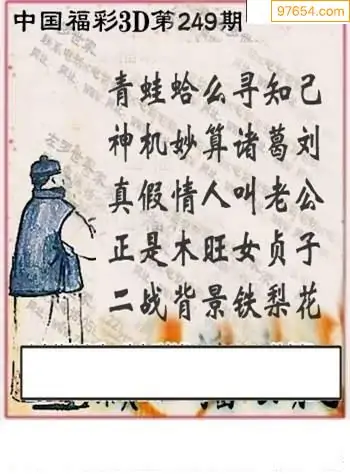 97654.com
中国福彩3D第249期
青蛙蛤么寻知己
神机妙算诸葛刘
真假情人叫老公
正是木旺女贞子
二战背景铁梨花